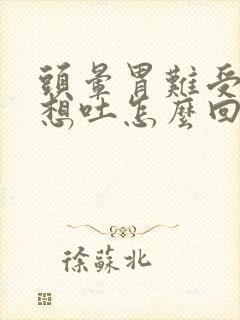 頭暈胃難受
想吐怎麼回
徐蘇北